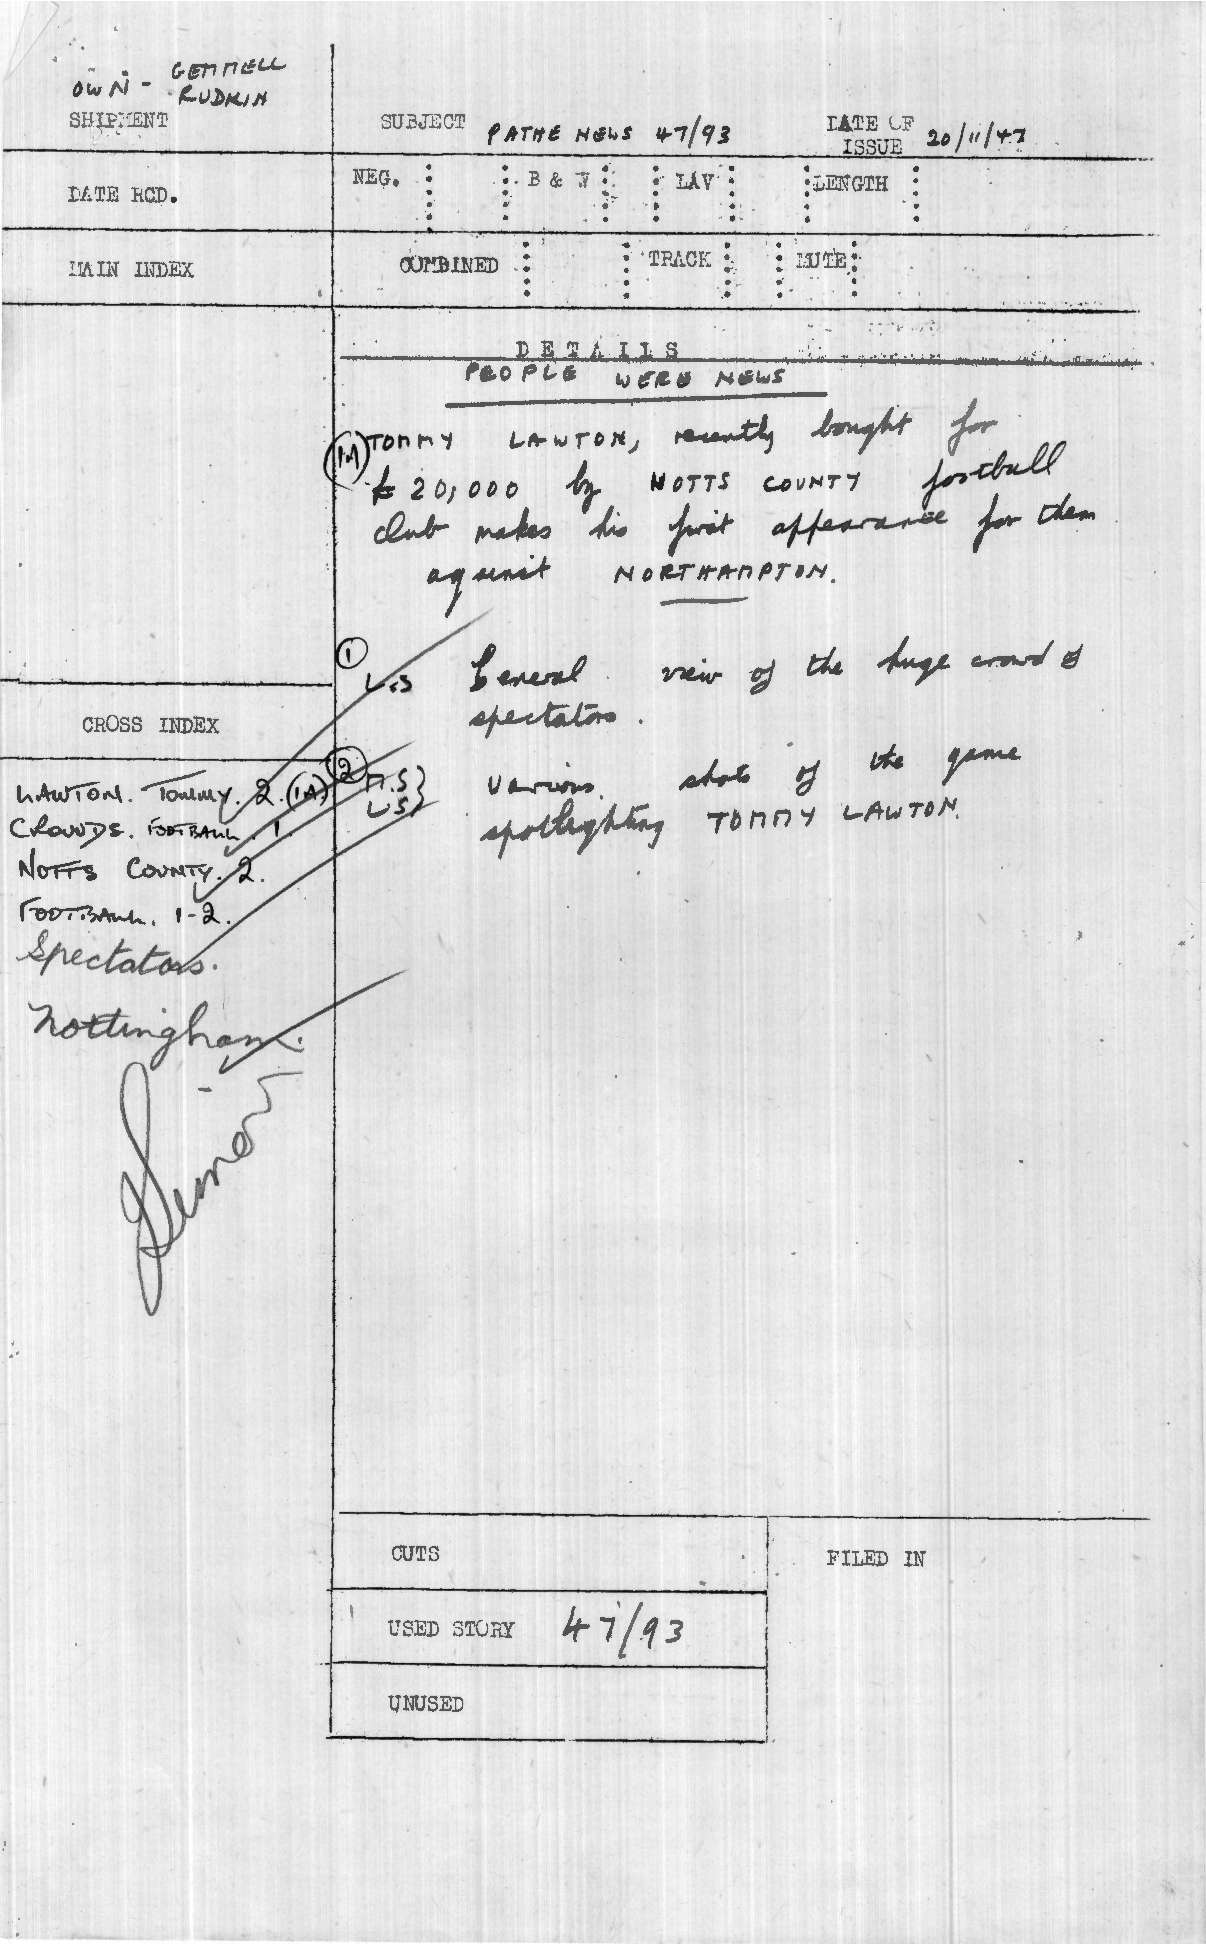 OWN - GEMMELL
RUDKIN
SHIPMENT
SUBJECT PATHE NEWS 47/93
DATE OF
ISSUE 20/11/47
DATE RCD.
NEG. B & W LAV LENGTH
MAIN INDEX
COMBINED TRACK MUTE
DETAILS
PEOPLE WERE NEWS
1A TOMMY LAWTON, recently bought for
£20,000 by NOTTS COUNTY football
club makes his first appearance for them
against NORTHAMPTON.
1
L.S General view of the huge crowd of
spectators.
2 M.S
L.S
Various shots of the game
spotlighting TOMMY LAWTON.
CROSS INDEX
LAWTON. TOMMY. 2. (1A)
CROWDS. FOOTBALL. 1.
NOTTS COUNTY. 2.
FOOTBALL. 1-2.
Spectators.
Nottingham.
CUTS
FILED IN
USED STORY 47/93
UNUSED